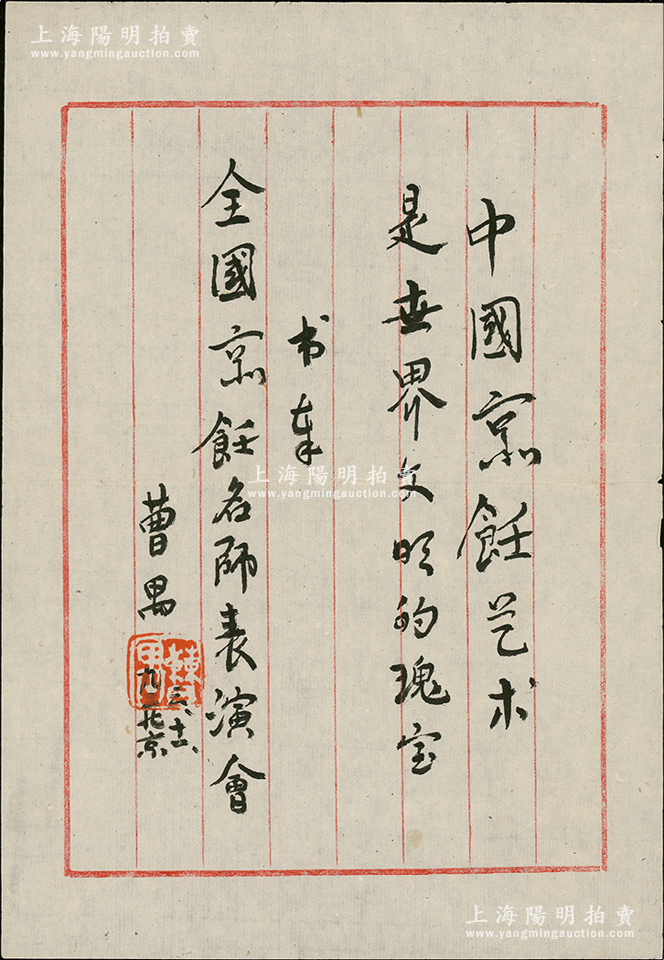 上海陽明拍賣
www.yangmingauction.com
中國烹飪艺术
是世界文明的瑰宝
书奉
全國烹飪名師表演會
曹禺
曹禺
上海陽明拍賣
www.yangmingauction.com
上海陽明拍賣
www.yangmingauction.com